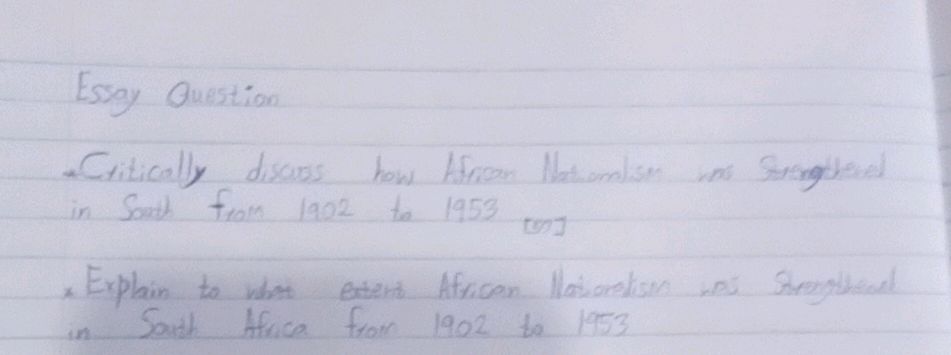 Essay Question
• Critically discuss how African Nationalism was Strengthened
in South from 1902 to 1953 [50]
* Explain to what extent African Nationalism was Strengthened
in South Africa from 1902 to 1953